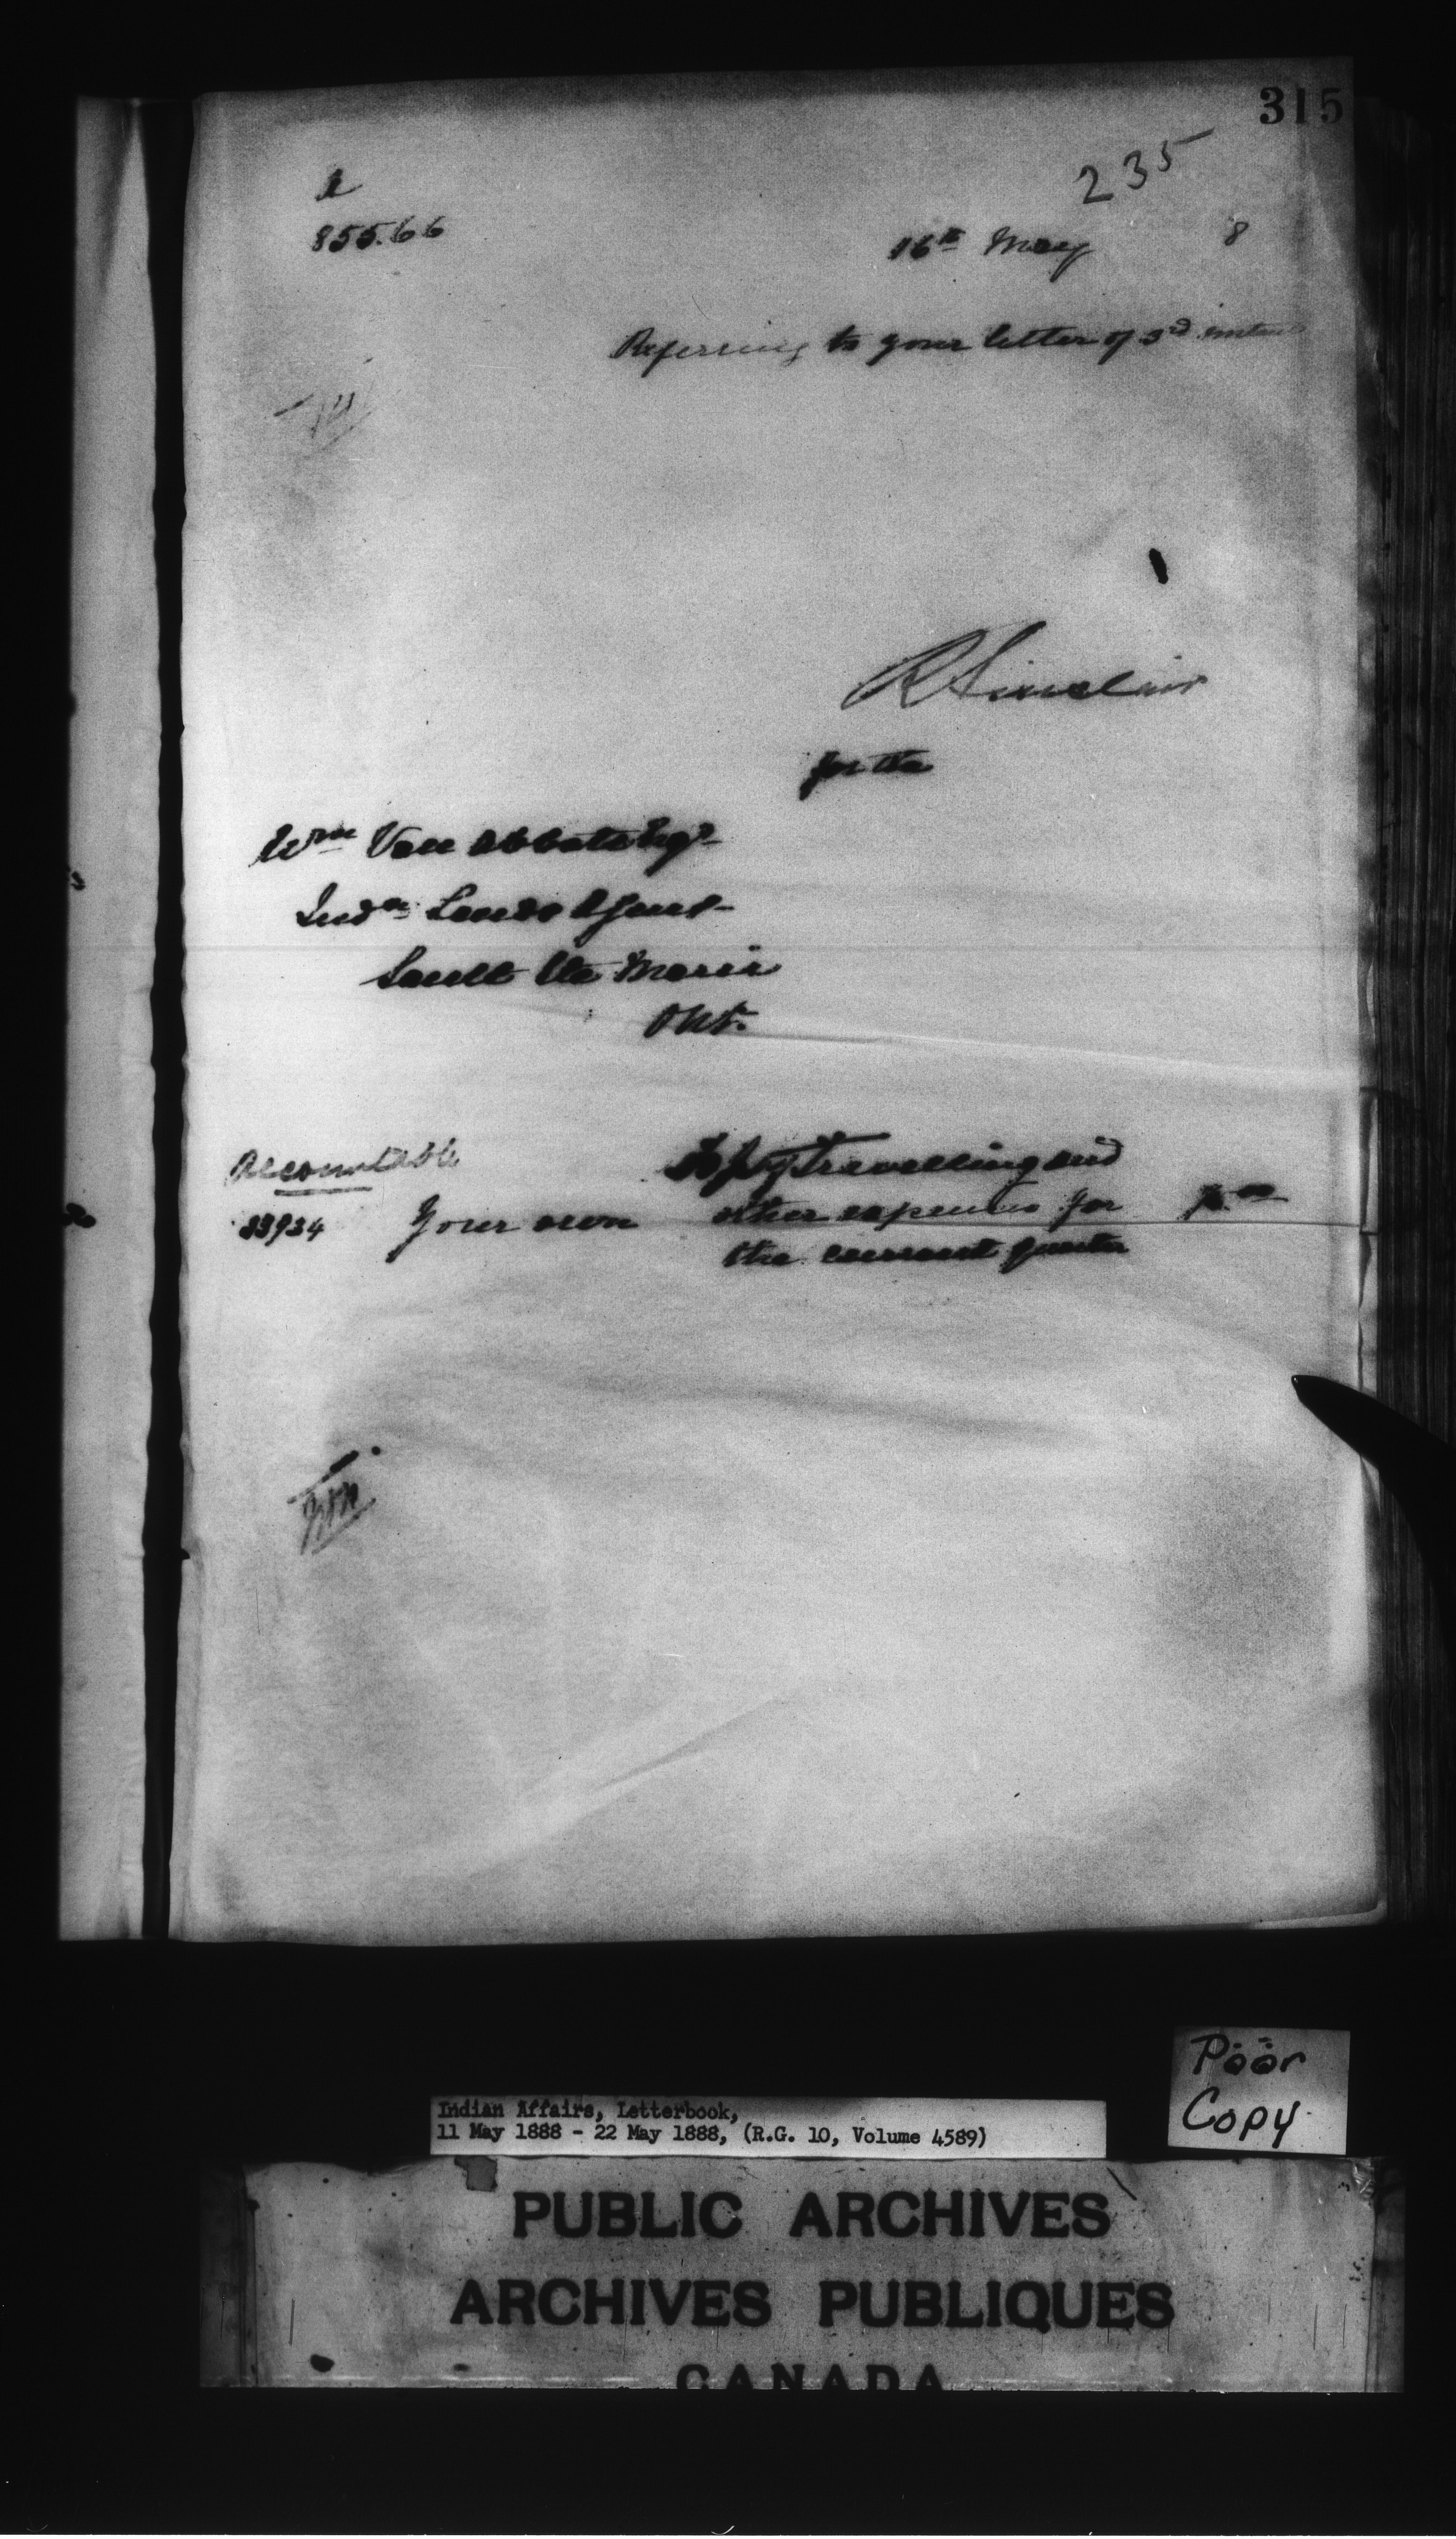 315
235
855.66
16th May 8
Referring to your letter of 3rd
R Sinclair
for the
Wm Van Abbott Esqr
Indn Lands Agent
Sault Ste Marie
Ont.
Accountable
To pay travelling and
33934 Your own other expenses for
the current quarter
Poor
Copy
Indian Affairs, Letterbook,
11 May 1888 - 22 May 1888, (R.G. 10, Volume 4589)
PUBLIC ARCHIVES
ARCHIVES PUBLIQUES
CANADA